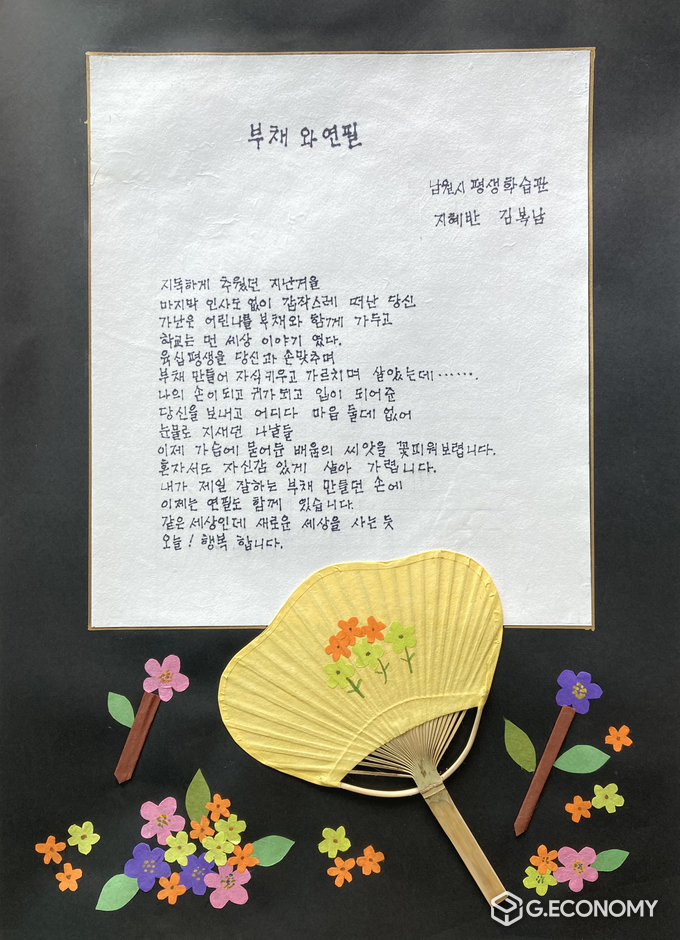 부채 와 연필
남원시 평생학습관
지혜반 김복남
지독하게 추웠던 지난겨울
마지막 인사도 없이 갑작스레 떠난 당신
가난은 어린나를 부채와 함께 가두고
학교는 먼 세상 이야기 였다.
육십평생을 당신과 손맞추며
부채 만들어 자식키우고 가르치며 살았는데·······.
나의 손이되고 귀가되고 입이 되어준
당신을 보내고 어디다 마음 둘데 없어
눈물로 지새던 나날들
이제 가슴에 묻어둔 배움의 씨앗을 꽃피워보렵니다.
혼자서도 자신감 있게 살아 가렵니다.
내가 제일 잘하는 부채 만들던 손에
이제는 연필도 함께 있습니다.
같은 세상인데 새로운 세상을 사는 듯
오늘! 행복 합니다.
G.ECONOMY